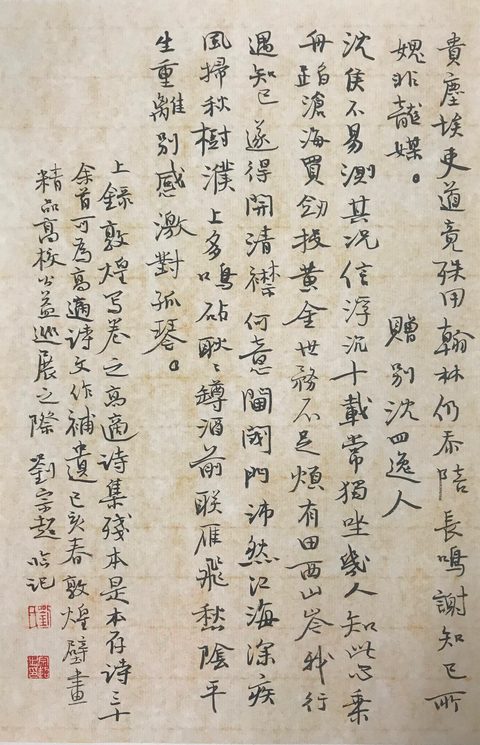 貴塵埃吏道竟殊用翰林仍忝陪長鳴謝知己所
媿非龍媒。 贈別沈四逸人
沈侯不易測其況信浮沉十載常獨坐幾人知此心乘
舟蹈滄海買劍投黃金世務不足煩有田西山岑我行
遇知己遂得開清襟何意閫閾間沛然江海深疾
風掃秋樹濮上多鳴砧耿〻罇酒前联雁飛愁陰平
生重離別感激對孤琴。
上錄敦煌写卷之高適詩集殘本是本存詩三十
余首可為高適詩文作補遺己亥春敦煌壁畫
精品高校公益巡展之際 劉宗超臨記